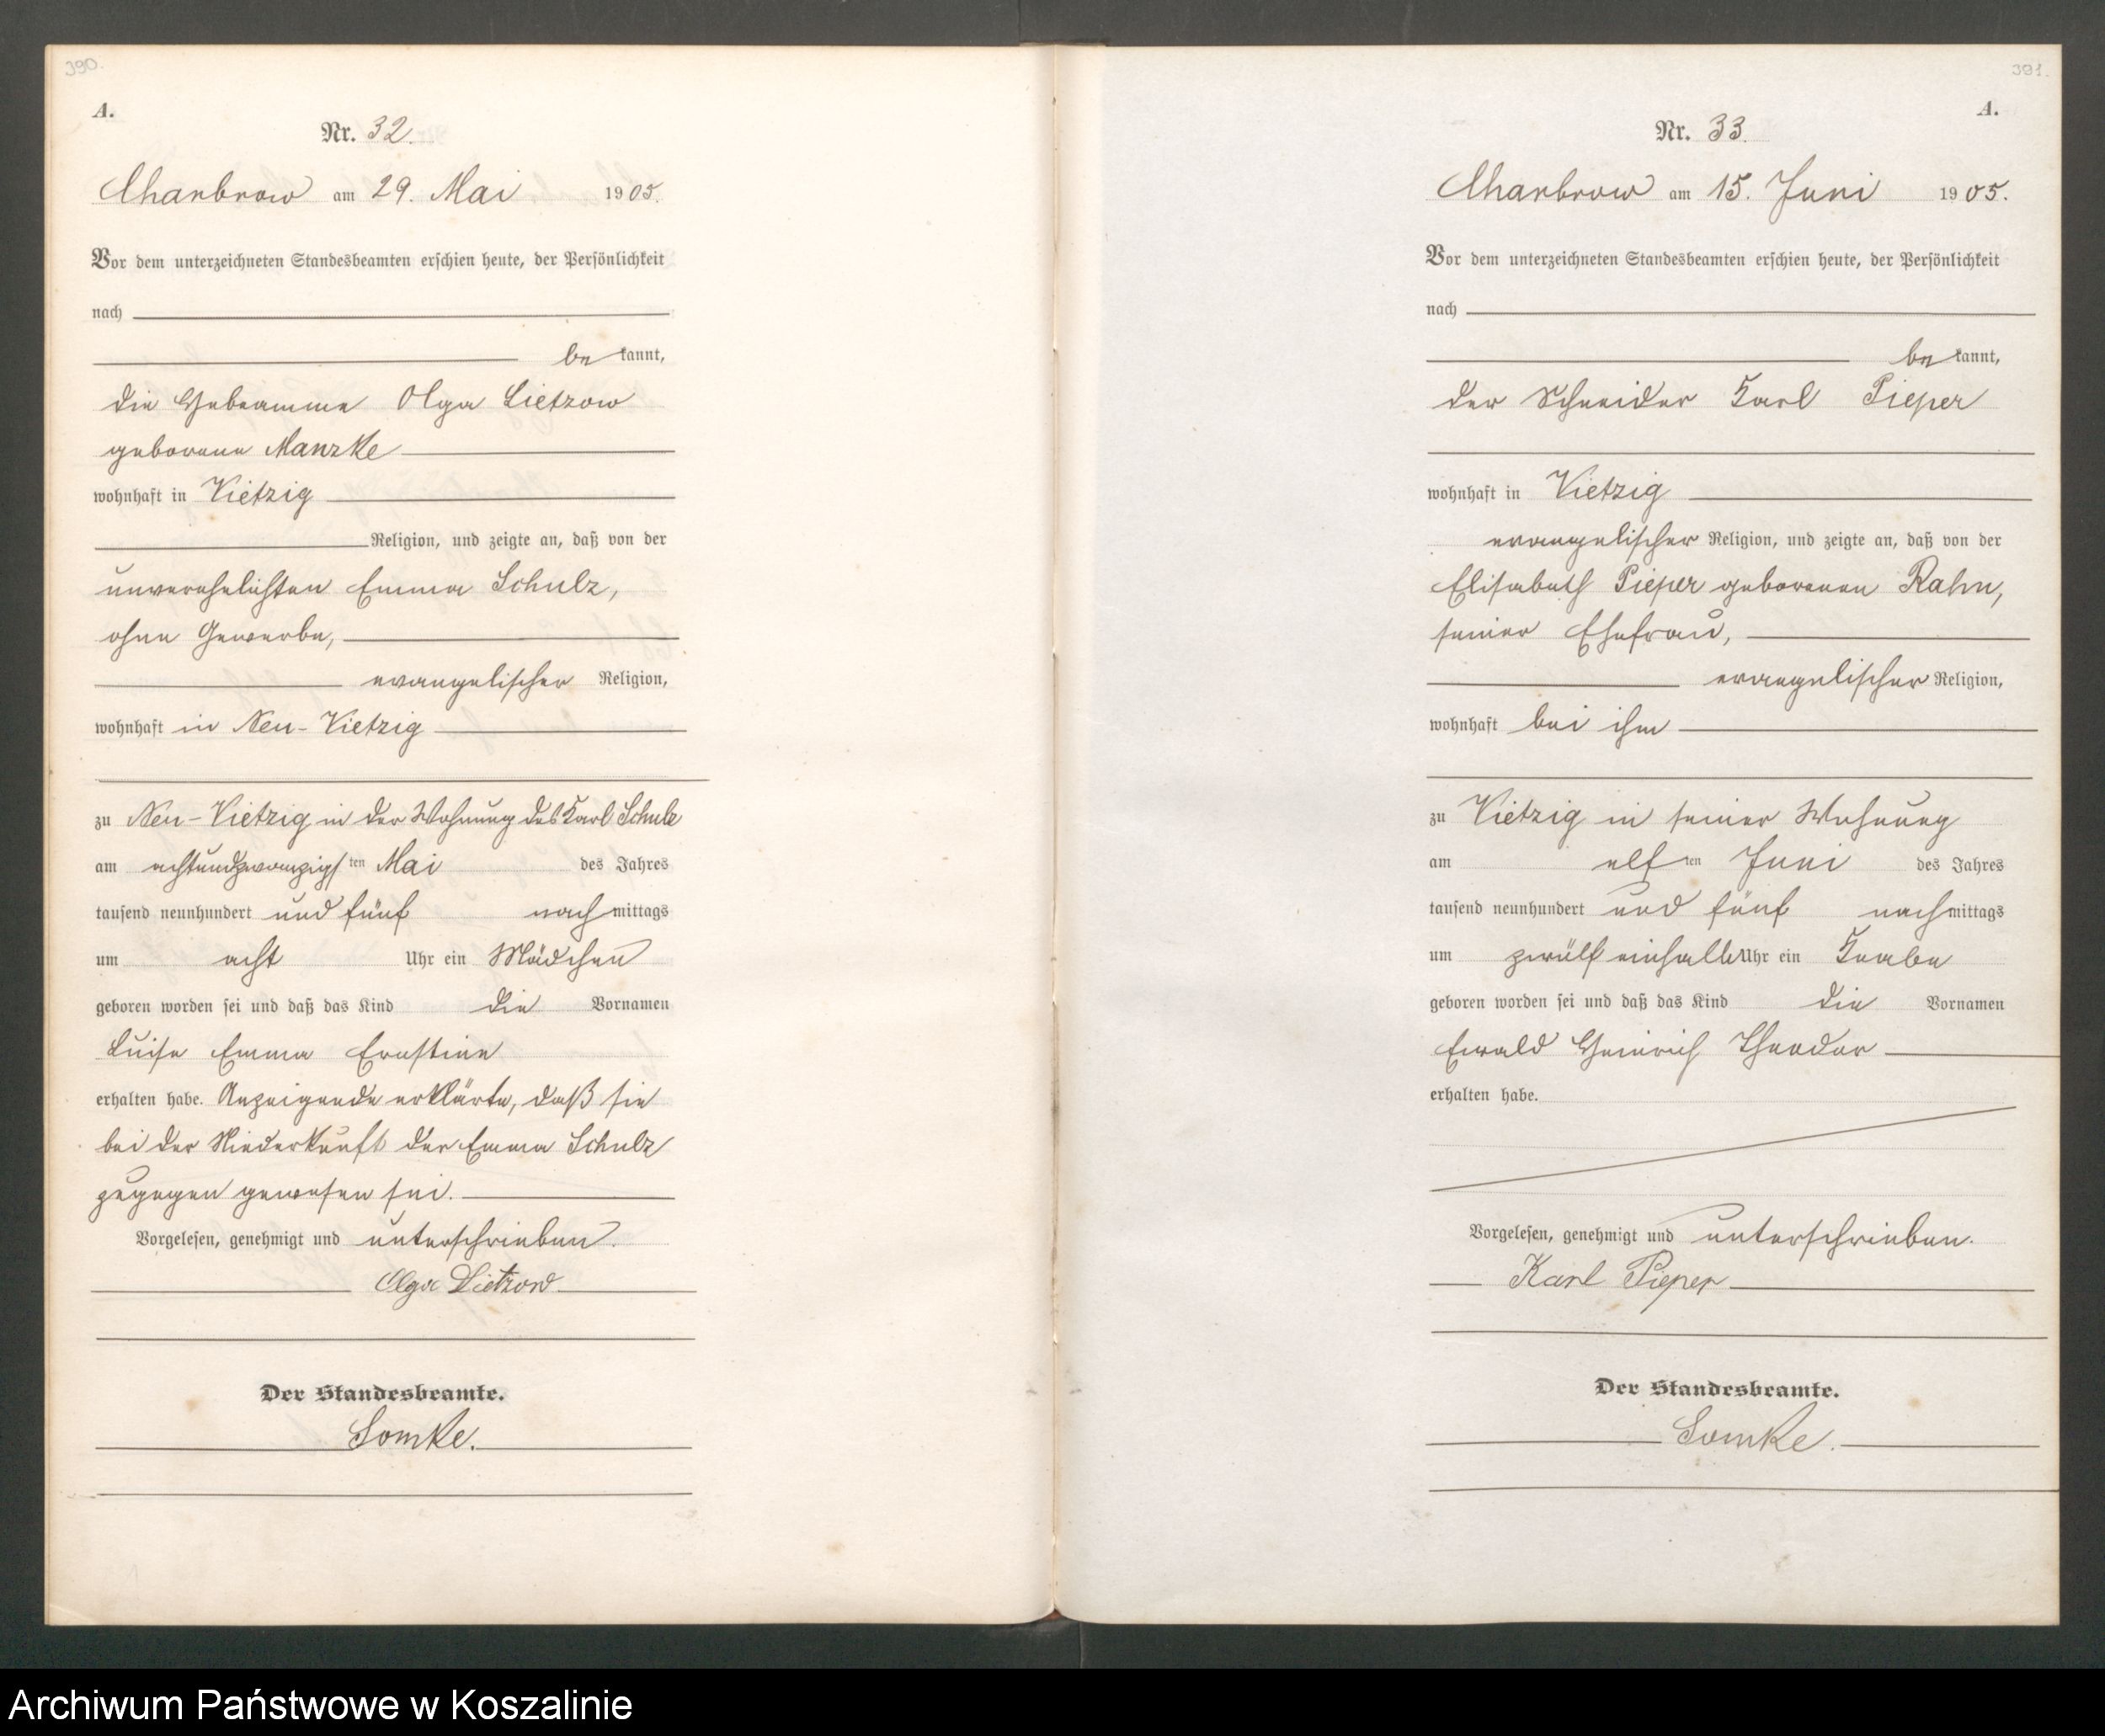 390.
A.
Nr. 32.
Charbrow am 29. Mai 1905.
Vor dem unterzeichneten Standesbeamten erschien heute, der Persönlichkeit
nach
be kannt,
die Hebeamme Olga Lietzow
geborene Manzke
wohnhaft in Vietzig
Religion, und zeigte an, daß von der
unverehelichten Emma Schulz,
ohne Gewerbe,
evangelischer Religion,
wohnhaft in Neu-Vietzig
zu Neu-Vietzig in der Wohnung des Karl Schulz
am achtundzwanzigsten Mai des Jahres
tausend neunhundert und fünf nachmittags
um acht Uhr ein Mädchen
geboren worden sei und daß das Kind die Vornamen
Luise Emma Ernstine
erhalten habe. Anzeigende erklärte, daß sie
bei der Niederkunft der Emma Schulz
zugegen gewesen sei.
Vorgelesen, genehmigt und unterschrieben.
Olga Lietzow
Der Standesbeamte.
Somke.
391.
A.
Nr. 33.
Charbrow am 15. Juni 1905.
Vor dem unterzeichneten Standesbeamten erschien heute, der Persönlichkeit
nach
be kannt,
der Schneider Karl Pieper
wohnhaft in Vietzig
evangelischer Religion, und zeigte an, daß von der
Elisabeth Pieper geborenen Rahn,
seiner Ehefrau,
evangelischer Religion,
wohnhaft bei ihm
zu Vietzig in seiner Wohnung
am elften Juni des Jahres
tausend neunhundert und fünf nachmittags
um zwölf einhalb Uhr ein Knabe
geboren worden sei und daß das Kind die Vornamen
Ewald Heinrich Theodor
erhalten habe.
Vorgelesen, genehmigt und unterschrieben.
Karl Pieper
Der Standesbeamte.
Somke.
Archiwum Państwowe w Koszalinie